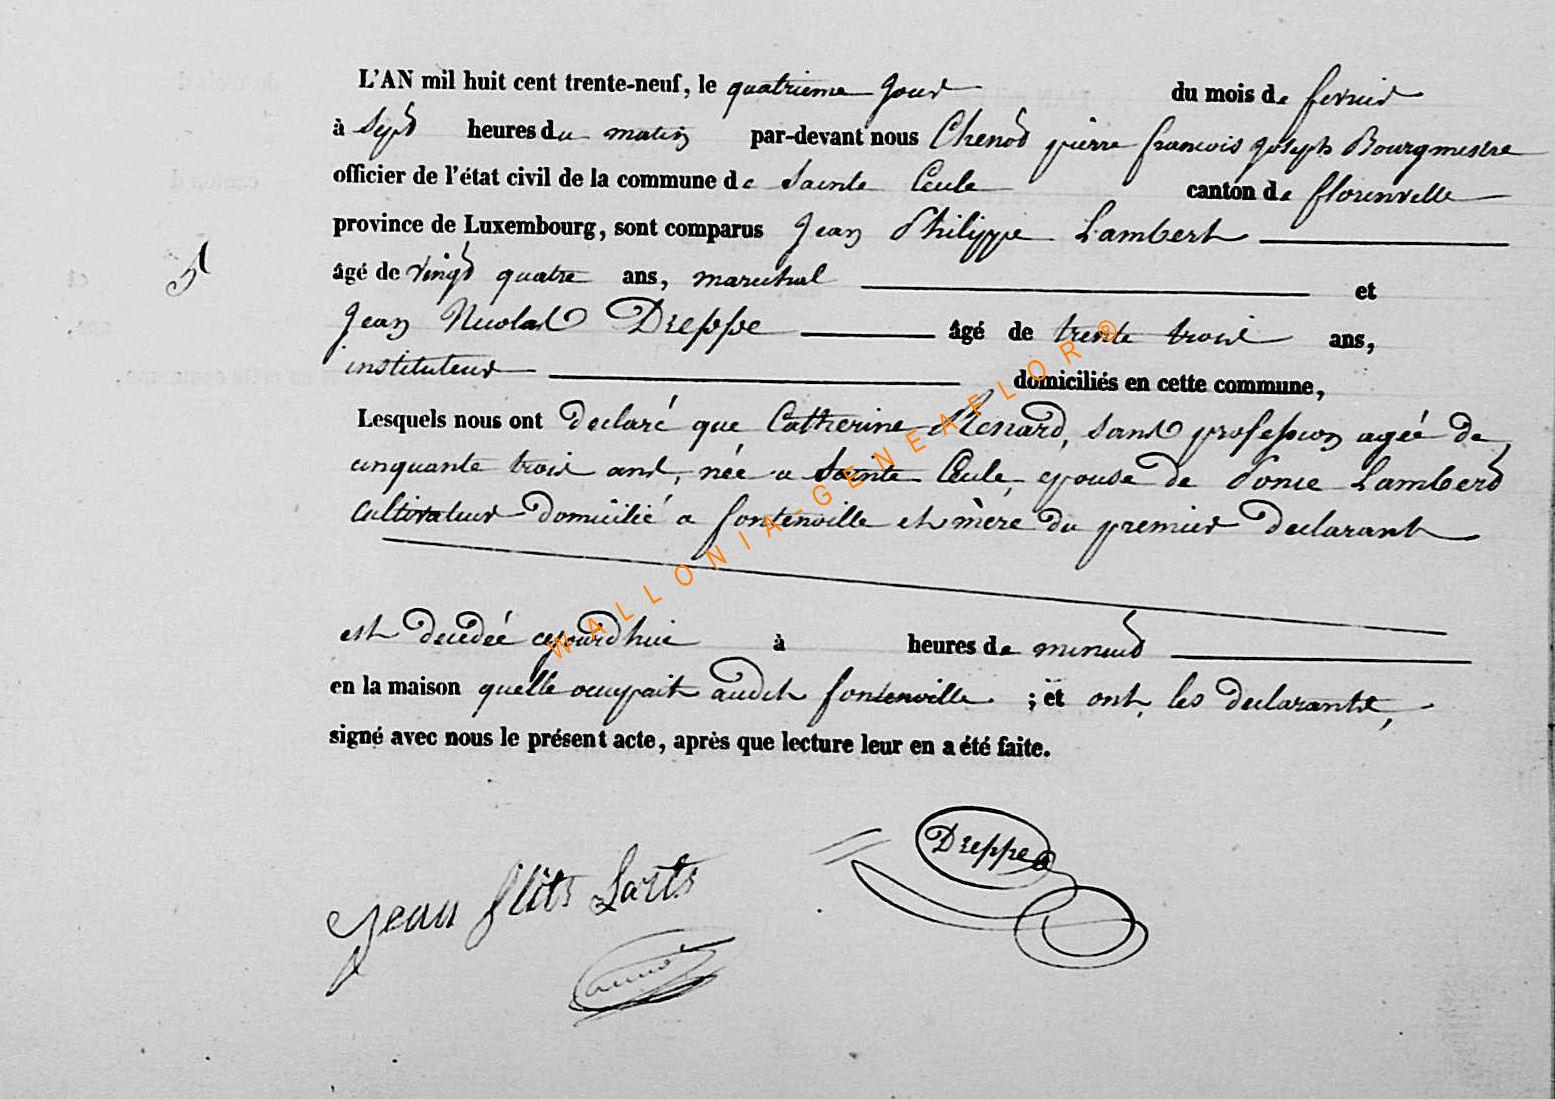 L'AN mil huit cent trente-neuf, le quatrieme jour du mois de fevrier
à Sept heures du matin par-devant nous Chenot pierre francois joseph Bourgmestre
officier de l'état civil de la commune de Sainte Cecile canton de florenville
province de Luxembourg, sont comparus Jean Philippe Lambert
âgé de vingt quatre ans, marechal et
5
Jean Nicolas Dreppe âgé de trente trois ans,
instituteur domiciliés en cette commune,
Lesquels nous ont declaré que Catherine Renard, sans profession agée de
cinquante trois ans, née a Sainte Cecile, epouse de Ponce Lambert
Cultivateur domicilié a fontenville et mère du premier declarant
est decedée cejourd'hui à heures de minuit
en la maison quelle occupait audit fontenville ; et ont les declarants,
signé avec nous le présent acte, après que lecture leur en a été faite.
Dreppe
Jean
WALLONIA-GENEAFLOR®